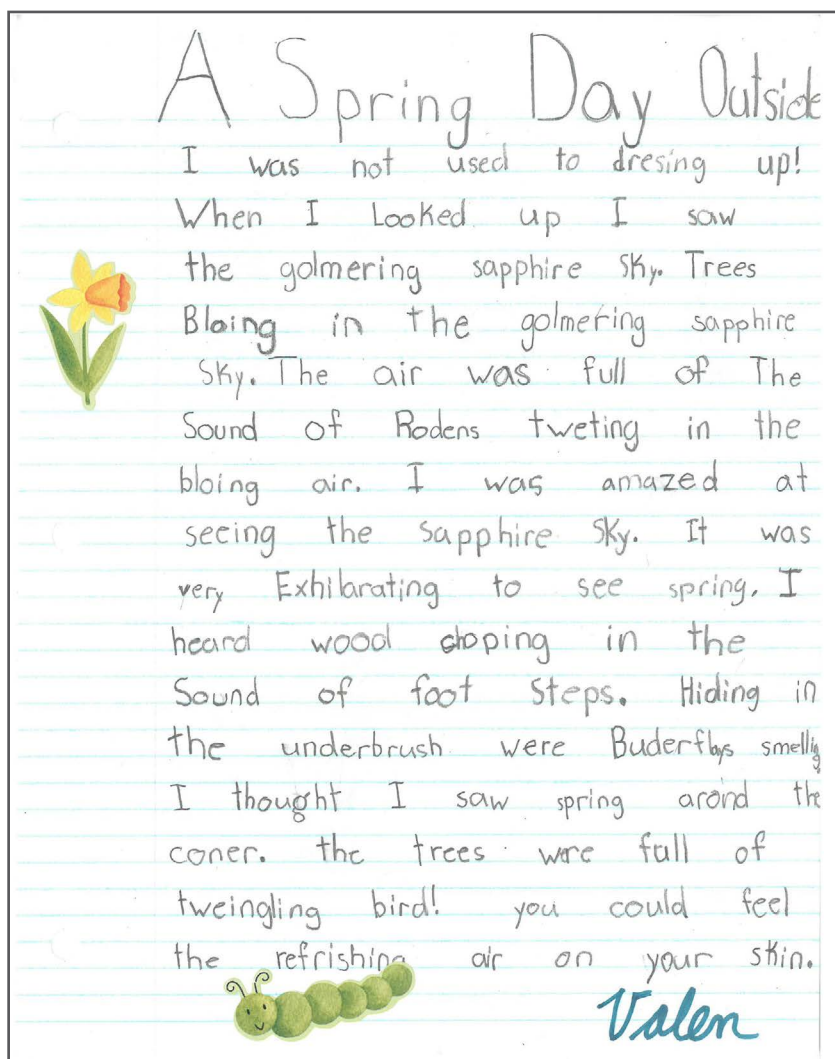 A Spring Day Outside
I was not used to dresing up!
When I Looked up I saw
the golmering sapphire sky. Trees
Bloing in the golmering sapphire
Sky. The air was full of The
Sound of Rodens tweting in the
bloing air. I was amazed at
seeing the sapphire sky. It was
very Exhilarating to see spring. I
heard wood choping in the
Sound of foot Steps. Hiding in
the underbrush were Buderflys smellig
I thought I saw spring arond the
coner. the trees were full of
tweingling bird! you could feel
the refrishing air on your skin.
Valen